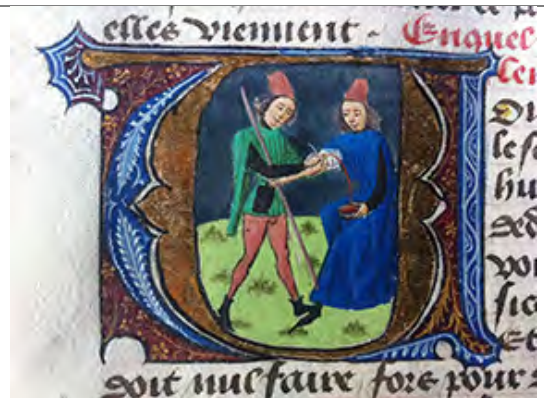 elles viennent. Enquel
le
hu
ded
voi
sic
Et
doit nul faire fors pour